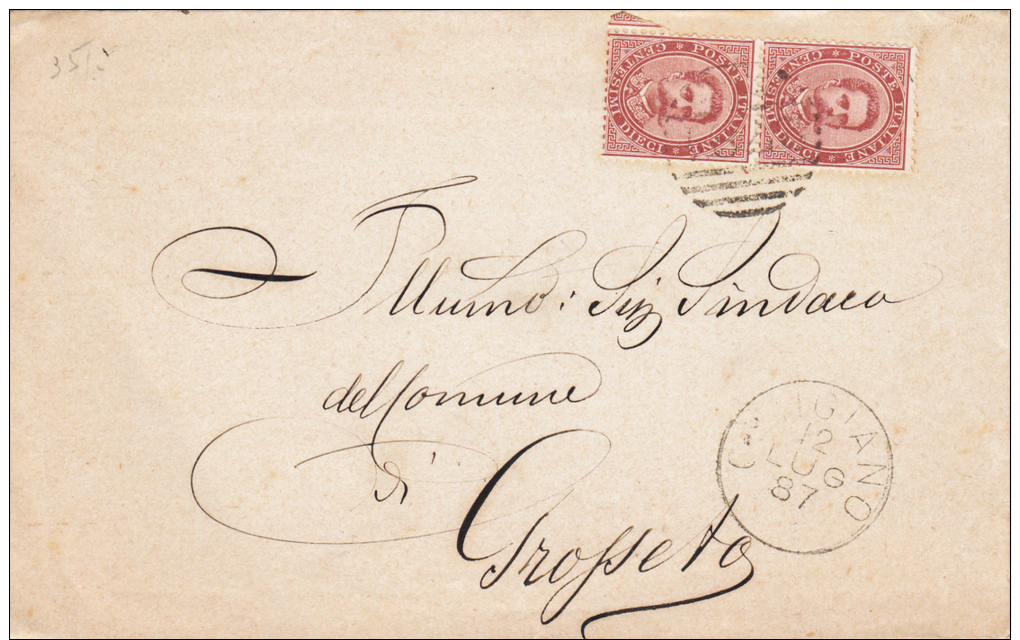 35/.
POSTE ITALIANE
CENTESIMI DIECI
POSTE ITALIANE
CENTESIMI DIECI
Illumo: Sig Sindaco
del Comune
di
Grosseto
12
LUG
87